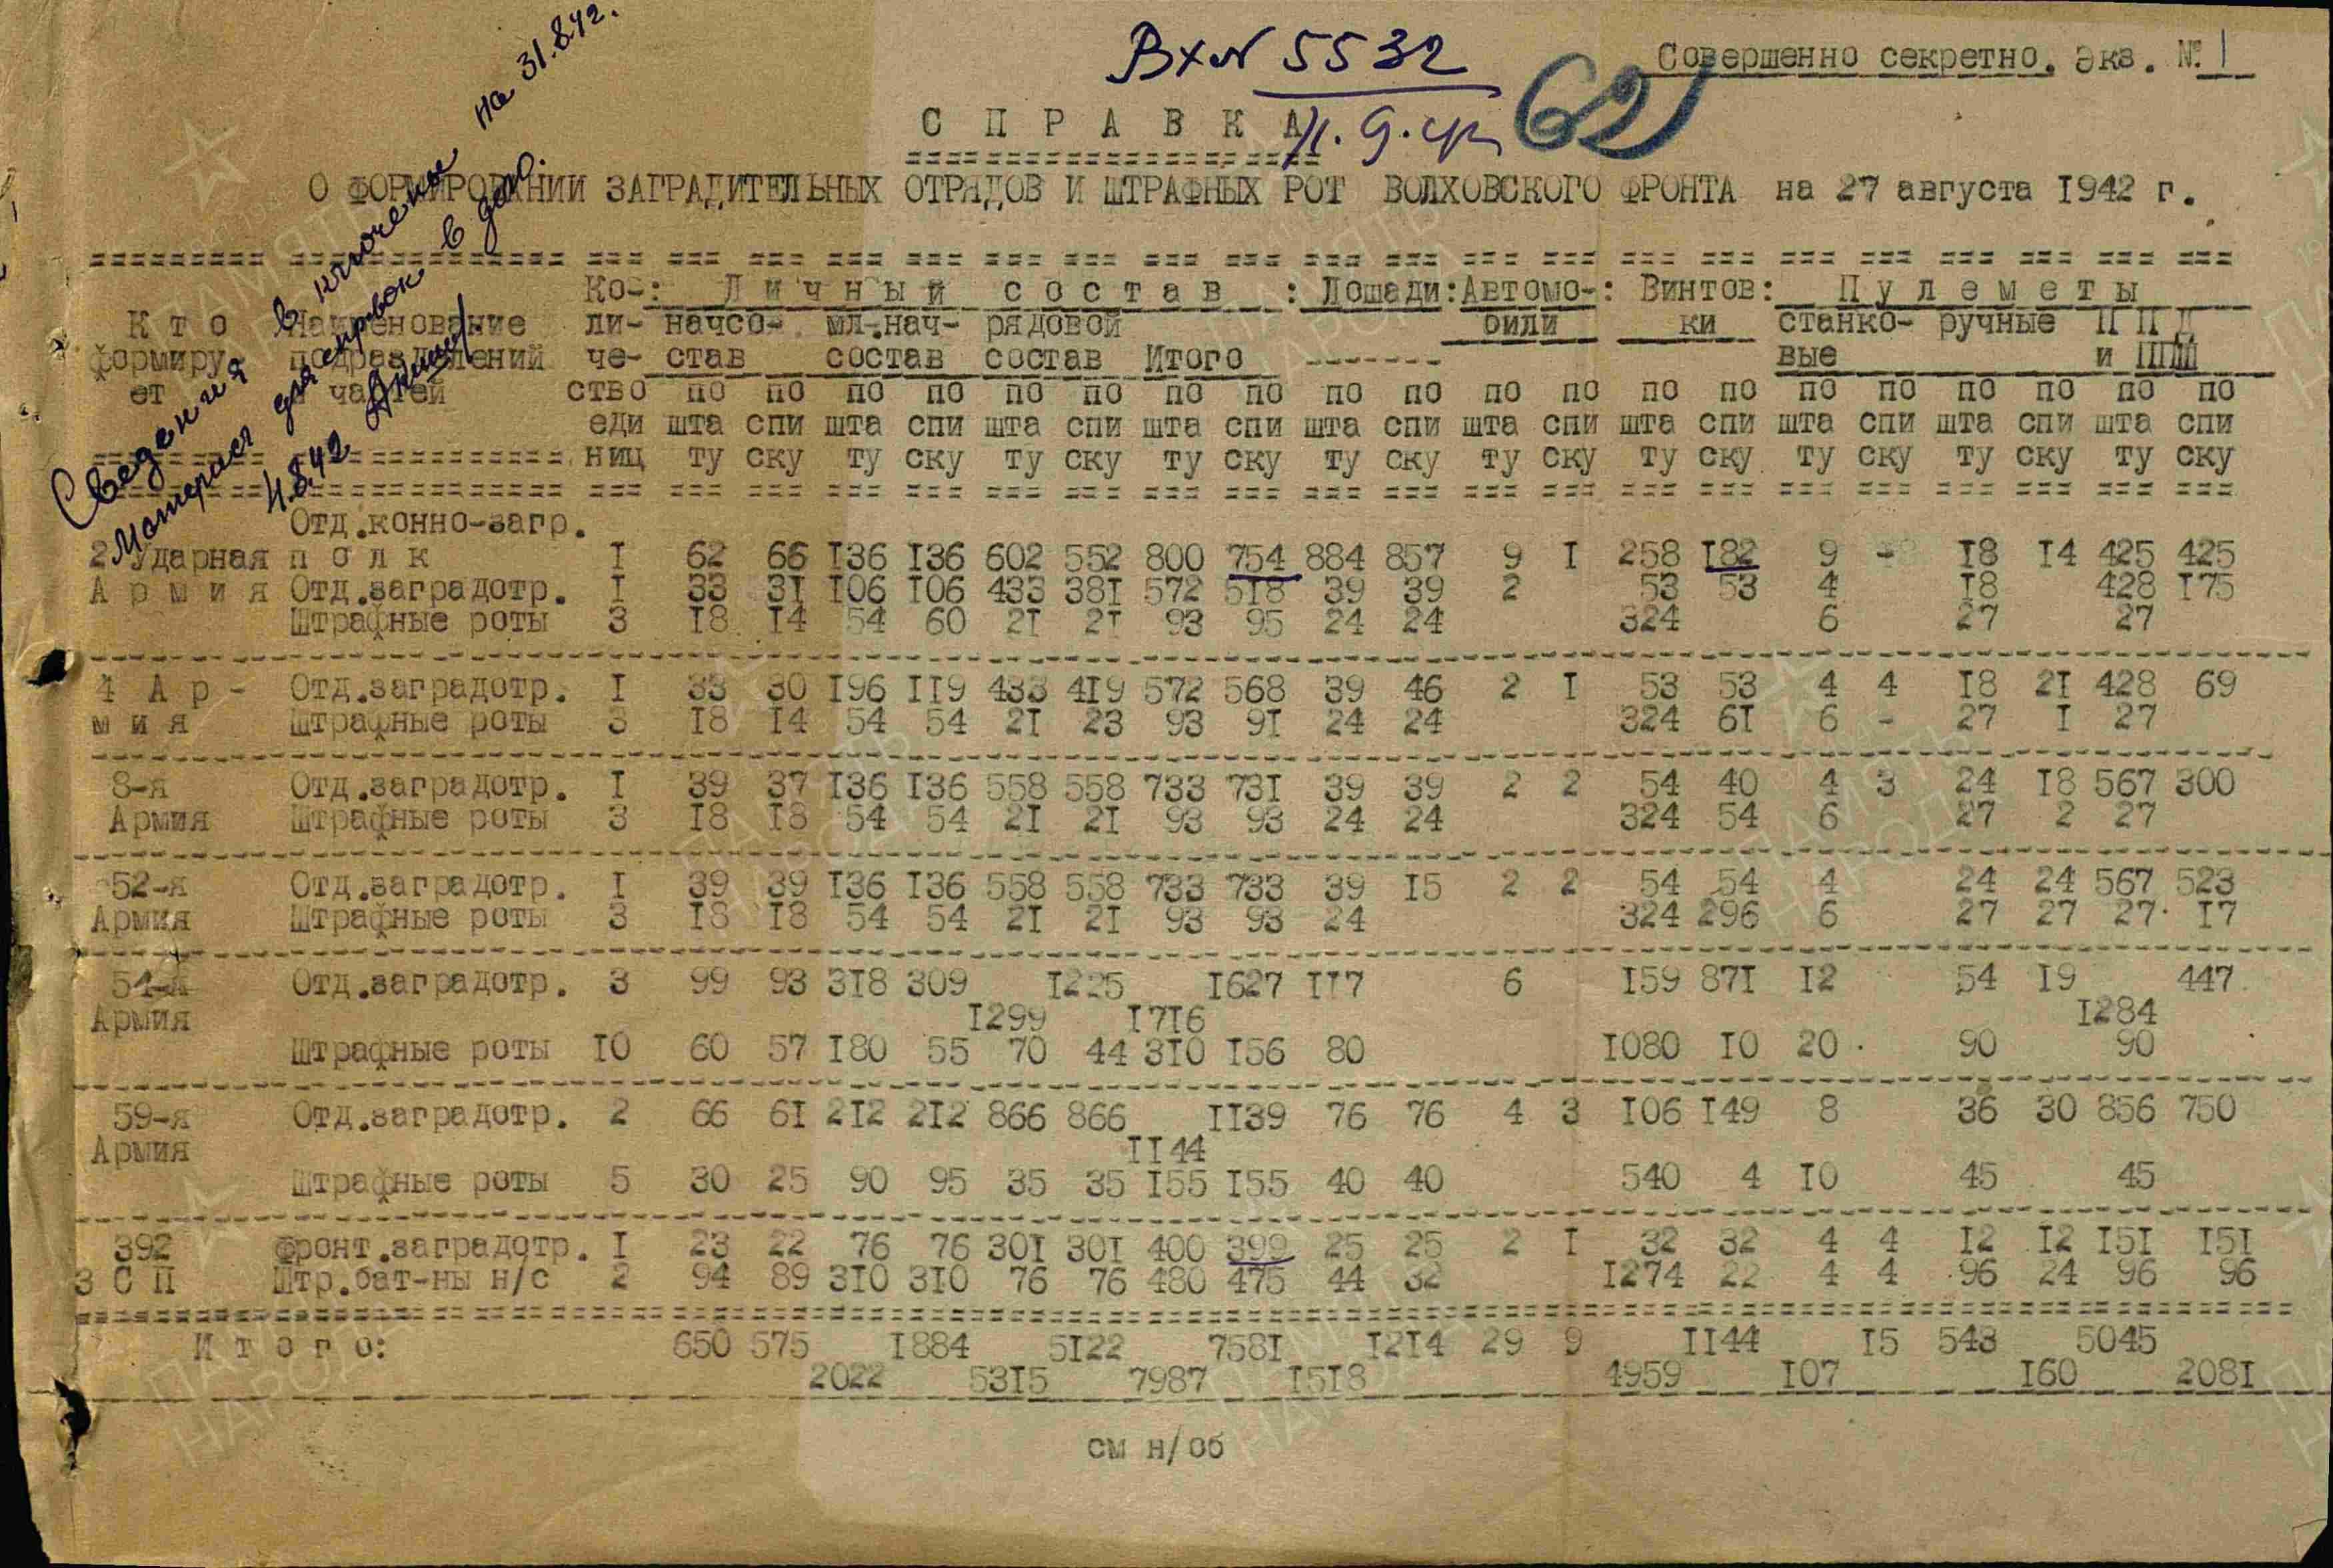 на 31.8.42г.
Вх№ 5532
Совершенно секретно. Экз. №1
62
С П Р А В К А
11.9.42
О ФОРМИРОВАНИИ ЗАГРАДИТЕЛЬНЫХ ОТРЯДОВ И ШТРАФНЫХ РОТ ВОЛХОВСКОГО ФРОНТА на 27 августа 1942 г.
Сведения включены
Материал для справок в дело.
Ко-: Л и ч н ы й с о с т а в : Лошади: Автомо-: Винтов: П у л е м е т ы
К т о Наименование ли- начсо- мл.нач- рядовой били ки станко- ручные П П Д
формиру подразделений че- став состав состав Итого ------- вые и ППШ
ет частей ство по по по по по по по по по по по по по по по по по по по по
еди шта спи шта спи шта спи шта спи шта спи шта спи шта спи шта спи шта спи шта спи
ниц ту ску ту ску ту ску ту ску ту ску ту ску ту ску ту ску ту ску ту ску
Отд.конно-загр.
2 Ударная п о л к I 62 66 I36 I36 602 552 800 754 884 857 9 I 258 I82 9 - I8 I4 425 425
А р м и я Отд.заградотр. I 33 3I I06 I06 433 38I 572 5I8 39 39 2 53 53 4 I8 428 I75
Штрафные роты 3 I8 I4 54 60 2I 2I 93 95 24 24 324 6 27 27
4 А р - Отд.заградотр. I 33 30 I96 II9 433 4I9 572 568 39 46 2 I 53 53 4 4 I8 2I 428 69
м и я Штрафные роты 3 I8 I4 54 54 2I 23 93 9I 24 24 324 6I 6 - 27 I 27
8-я Отд.заградотр. I 39 37 I36 I36 558 558 733 73I 39 39 2 2 54 40 4 3 24 I8 567 300
Армия Штрафные роты 3 I8 I8 54 54 2I 2I 93 93 24 24 324 54 6 27 2 27
52-я Отд.заградотр. I 39 39 I36 I36 558 558 733 733 39 I5 2 2 54 54 4 24 24 567 523
Армия Штрафные роты 3 I8 I8 54 54 2I 2I 93 93 24 324 296 6 27 27 27 I7
54-я Отд.заградотр. 3 99 93 3I8 309 I225 I627 II7 6 I59 87I I2 54 I9 447
Армия I299 I7I6 I284
Штрафные роты I0 60 57 I80 55 70 44 3I0 I56 80 I080 I0 20 90 90
59-я Отд.заградотр. 2 66 6I 2I2 2I2 866 866 II39 76 76 4 3 I06 I49 8 36 30 856 750
Армия II44
Штрафные роты 5 30 25 90 95 35 35 I55 I55 40 40 540 4 I0 45 45
392 Фронт.заградотр. I 23 22 76 76 30I 30I 400 399 25 25 2 I 32 32 4 4 I2 I2 I5I I5I
З С П Штр.бат-ны н/с 2 94 89 3I0 3I0 76 76 480 475 44 32 I274 22 4 4 96 24 96 96
И т о г о: 650 575 I884 5I22 758I I2I4 29 9 II44 I5 543 5045
2022 53I5 7987 I5I8 4959 I07 I60 208I
см н/об